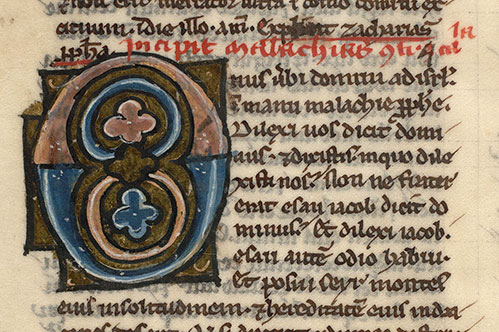 citium. Die illo. am. Explicit zacharias
ppha. Incipit malachias
nus űbi domini ad isrl̃
ĩ manu malachie pphe.
Dilexi uos dicit domi
nus. ⁊ dixistis in quo dile
xisti nos. Non ne frater
erat esau iacob dicit do
minus. Et dilexi iacob.
esau autẽ odio habui.
Et posui seyr montes
eius in solitudinem. ⁊ hereditatẽ eius in dra